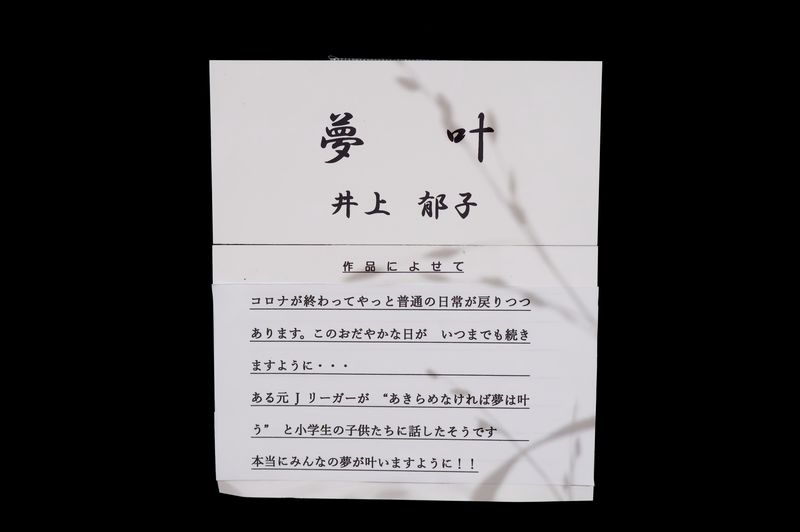 夢　叶
井上　郁子
作品によせて
コロナが終わってやっと普通の日常が戻りつつ
あります。このおだやかな日が　いつまでも続き
ますように・・・
ある元 J リーガーが　“あきらめなければ夢は叶
う”　と小学生の子供たちに話したそうです
本当にみんなの夢が叶いますように！！